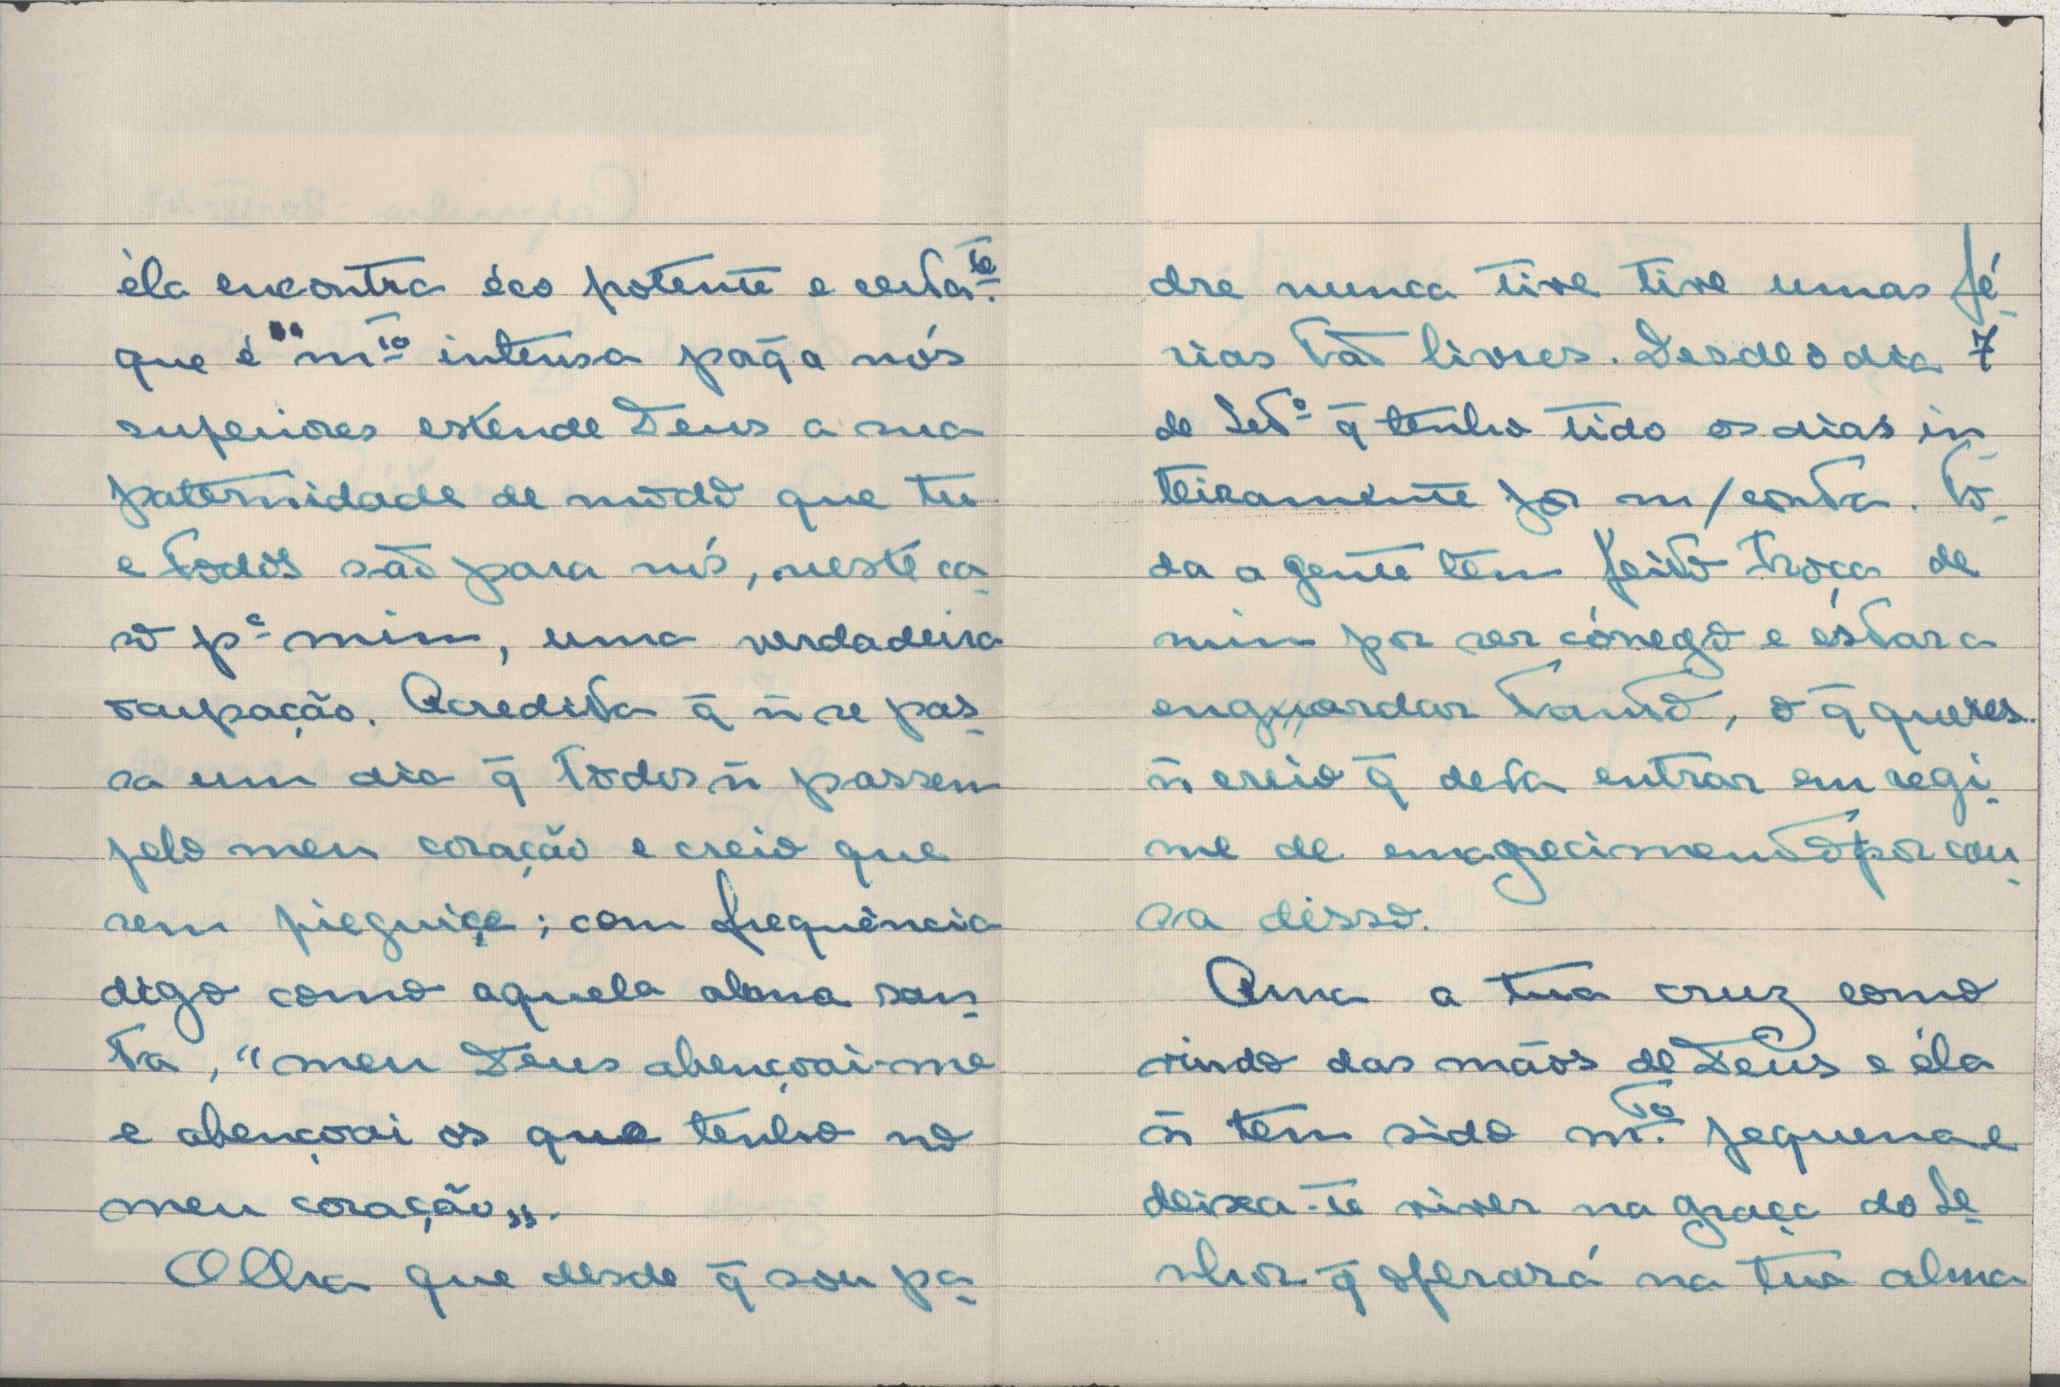 éla encontra éco potente e certa.te
que é mto intensa porq̄ a nós
superiores estende Deus a sua
paternidade de modo que tu
e todos são para nós, neste ca-
so pa mim, uma verdadeira
ocupação. Acredita q̄ ñ se pas-
sa um dia q̄ todos ñ passem
pelo meu coração e creio que
sem pieguice; com frequência
digo como aquela alma san-
ta, "meu Deus abençoai-me
e abençoai os que tenho no
meu coração".
Olha que desde q̄ sou pa-
dre nunca tive tive umas fé-
rias tão livres. Desde o dia 7
de Seto q̄ tenho tido os dias in-
teiramente por m/conta. To-
da a gente tem feito troça de
mim por ser cónego e éstar a
engordar tanto, o q̄ queres.
ñ creio q̄ deva entrar em regi-
me de emagrecimento por cau-
sa disso.
Ama a tua cruz como
vindo das mãos de Deus e éla
ñ tem sido mta pequena e
deixa-te viver na graça do Se-
nhor q̄ operará na tua alma